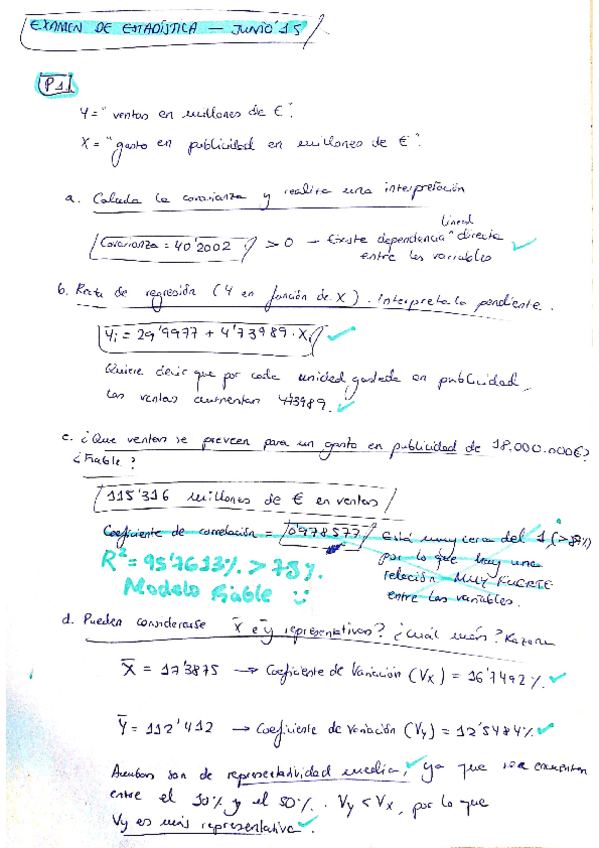 EXAMEN DE ESTADÍSTICA — JUNIO'15
P1
Y = "ventas en millones de €".
X = "gasto en publicidad en millones de €".
a. Calcula la covarianza y realiza una interpretación
Covarianza = 40'2002 > 0 - Existe dependencia lineal directa
entre las variables
b. Recta de regresión (Y en función de X). Interpreta la pendiente.
Yi = 29'9977 + 4'73989 · Xi
Quiere decir que por cada unidad gastada en publicidad,
las ventas aumentan 4'73989.
c. ¿Que ventas se preveen para un gasto en publicidad de 18.000.000€?
¿Fiable?
115'316 millones de € en ventas
Coeficiente de correlación = 0'978577 Está muy cerca del 1
por lo que hay una
relación MUY FUERTE
entre las variables.
R² = 95'7613% > 75%.
Modelo Fiable
d. Pueden considerarse x̄ e ȳ representativos? ¿Cuál más? Razona
X̄ = 17'3875 → Coeficiente de Variación (Vx) = 16'7492%.
Ȳ = 112'412 → Coeficiente de variación (Vy) = 12'5484%.
Ambas son de representatividad media, ya que se encuentran
entre el 10% y el 50%. Vy < Vx, por lo que
Vy es más representativa.